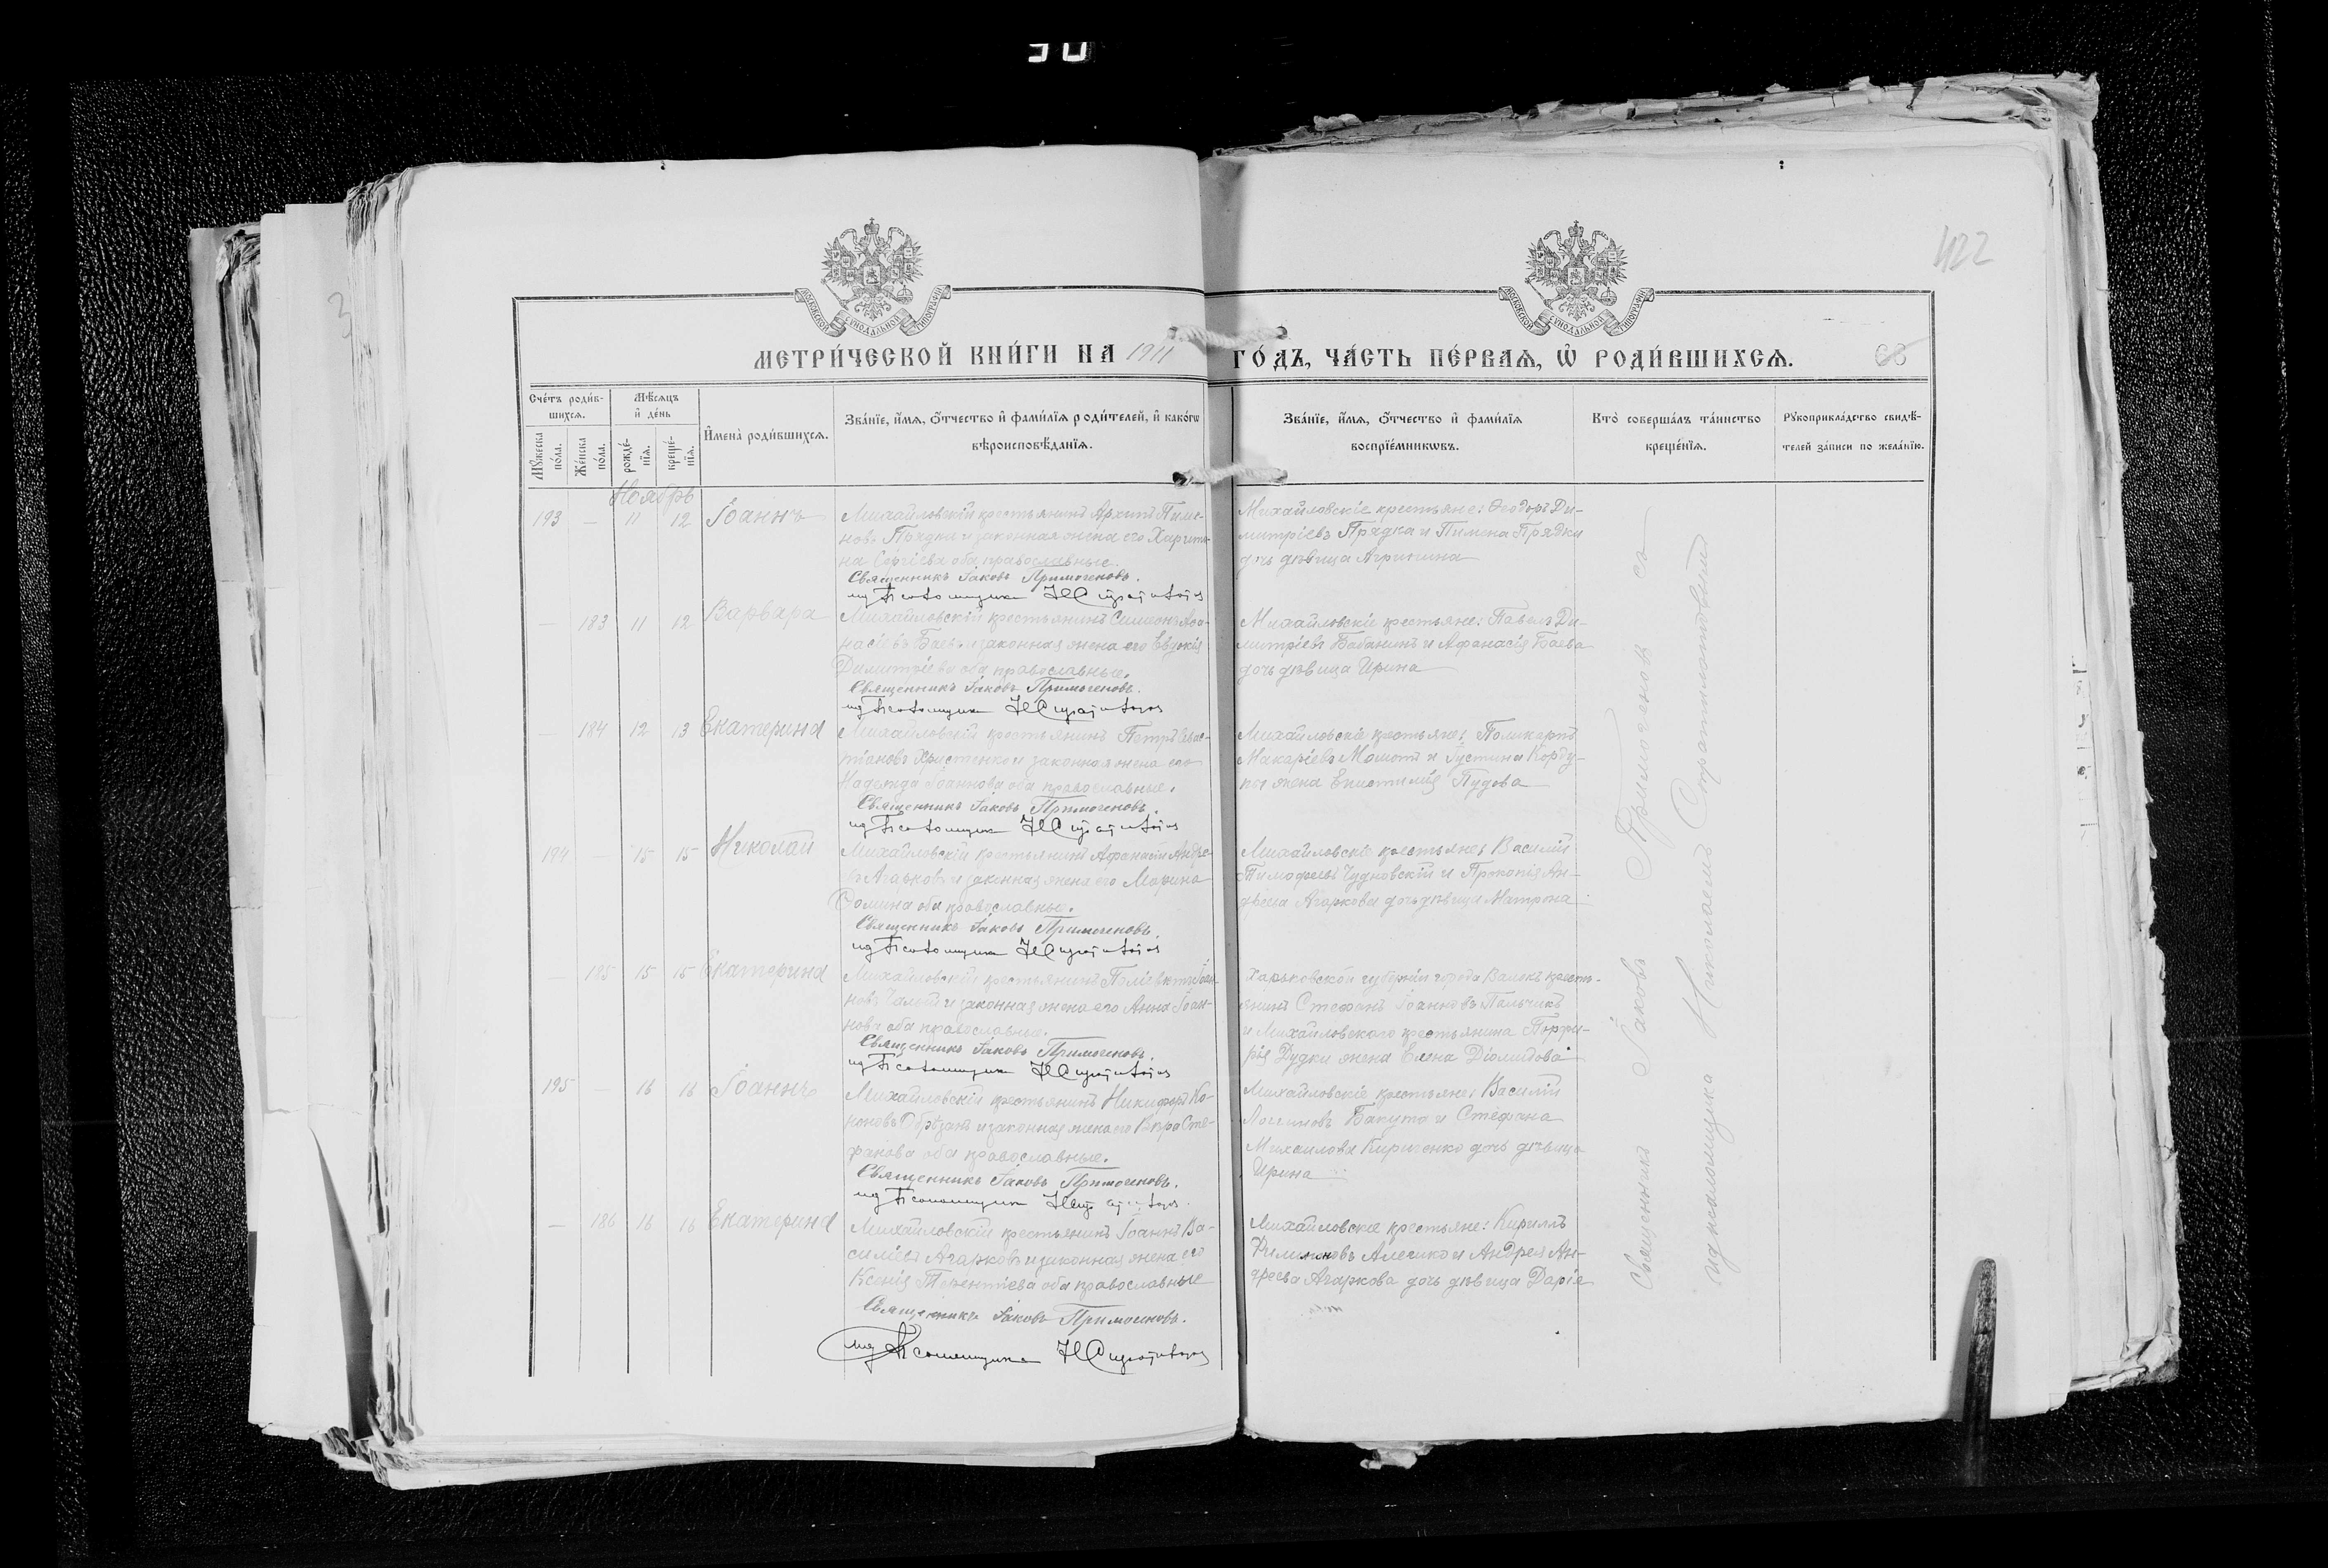 90
422
МОСКОВСКОЙ СУНОДАЛЬНОЙ ТИПОГРАФІИ
МОСКОВСКОЙ СУНОДАЛЬНОЙ ТИПОГРАФІИ
МЕТРИ́ЧЕСКОЙ КНИ́ГИ НА 1911 ГО́ДЪ, ЧА́СТЬ ПЕ́РВАЯ, Ѡ РОДИ́ВШИХСЯ. 63
Сче́тъ роди́в-
шихся.
Мѣсяцъ
и҆ де́нь
Му́жеска
по́ла.
Же́нска
по́ла.
рожде́-
нїя.
креще́-
нїя.
И҆мена̀ роди́вшихся.
Зва́нїе, и҆́мя, ѻ҆́тчество и҆ фами́лїя роди́телей, и҆ како́гѡ
вѣроисповѣ́данїя.
Зва́нїе, и҆́мя, ѻ҆́тчество и҆ фами́лїя
воспрїе́мникѡвъ.
Кто̀ соверша́лъ та́инство
креще́нїя.
Рꙋкоприкла́дство свидѣ́-
телей за́писи по жела́нїю.
Ноябрь
193 — 11 12 Іоаннъ
Михайловскій крестьянинъ Архипъ Пиме-
новъ Прядка и законная жена его Харити-
на Сергіева оба православные.
Священникъ Іаковъ Примогеновъ.
Михайловскіе крестьяне: Ѳеодоръ Ди-
митріевъ Прядка и Пимена Прядки
дочь дѣвица Агрипина
— 183 11 12 Варвара
Михайловскій крестьянинъ Симеонъ Афа-
насіевъ Баевъ и законная жена его Евдокія
Димитріева оба православные.
Священникъ Іаковъ Примогеновъ.
Михайловскіе крестьяне: Павелъ Ди-
митріевъ Бабанинъ и Афанасія Баева
дочь дѣвица Ирина
— 184 12 13 Екатерина
Михайловскій крестьянинъ Петръ
Христенко и законная жена его
Надежда Іоаннова оба православные.
Священникъ Іаковъ Примогеновъ.
Михайловскіе крестьяне: Поликарпъ
Макаріевъ Момотъ и Іустина Корду-
жена Епистимія Пудова
194 — 15 15 Николай
Михайловскій крестьянинъ Афанасій Андре-
Агарковъ и законная жена его Марина
Фомина оба православные.
Священникъ Іаковъ Примогеновъ.
Михайловскіе крестьяне: Василій
Тимофеевъ Чудновскій и Прокопія Ан-
дреева Агаркова дочь дѣвица Матрона
— 185 15 15 Екатерина
Михайловскій крестьянинъ Поліевктъ Іоан-
новъ и законная жена его Анна Іоан-
нова оба православные.
Священникъ Іаковъ Примогеновъ.
Харьковской губерніи города Валокъ кресть-
янинъ Стефанъ Іоанновъ Пальчикъ
и Михайловского крестьянина Порфи-
рія Дудки жена Елена Діомидова
195 — 16 16 Іоаннъ
Михайловскій крестьянинъ Никифоръ Ко-
ноновъ Обрѣзанъ и законная жена его Вѣра Сте-
фанова оба православные.
Священникъ Іаковъ Примогеновъ.
Михайловскіе крестьяне: Василій
Логиновъ Бакута и Стефана
Михаилова Кириченко дочь дѣвица
Ирина
— 186 16 16 Екатерина
Михайловскій крестьянинъ Іоаннъ Ва-
силіевъ Агарковъ и законная жена его
Ксенія Терентіева оба православные
Священникъ Іаковъ Примогеновъ.
Михайловскіе крестьяне: Кириллъ
Филимоновъ Алейко и Андрея Ан-
дреева Агаркова дочь дѣвица Дарія
Священникъ Іаковъ Примогеновъ съ
и д псаломщика Николаемъ